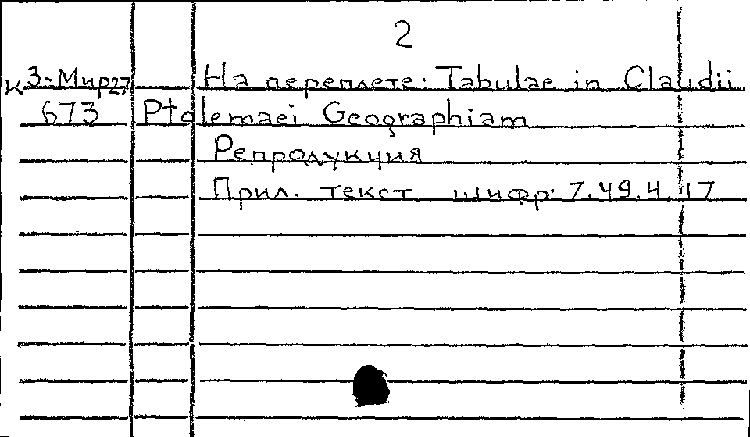 2
К 3-Мир27 На переплете: Tabulae in Claudii
673 Ptolemaei Geographiam
Репродукция
Прил. текст шифр: 7.49.4.17